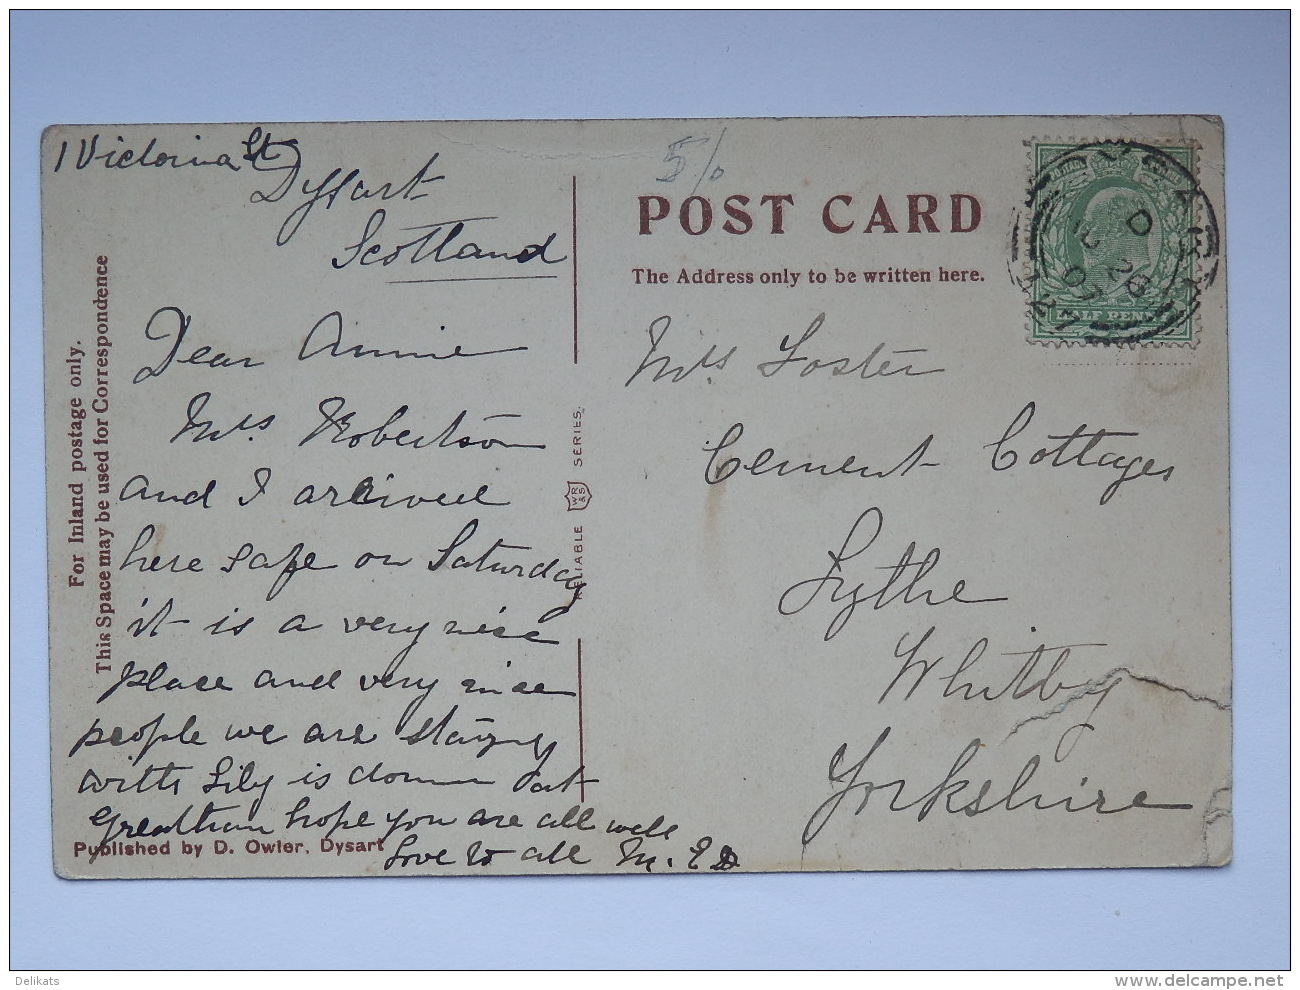 1 Victoria St
Dysart
Scotland
5/0
POST CARD
The Address only to be written here.
For Inland postage only.
This Space may be used for Correspondence
Dear Annie
Mrs Robertson
and I arrived
here safe on Saturday
it is a very nice
place and very nice
people we are staying
with Lily is down at
hope you are all well
Love to all M. E D
Mrs Foster
Cement Cottages
Lythe
Whitby
Yorkshire
RELIABLE WR&S SERIES.
HALF PENNY
D
20
07
Published by D. Owler, Dysart
Delikats
www.delcampe.net